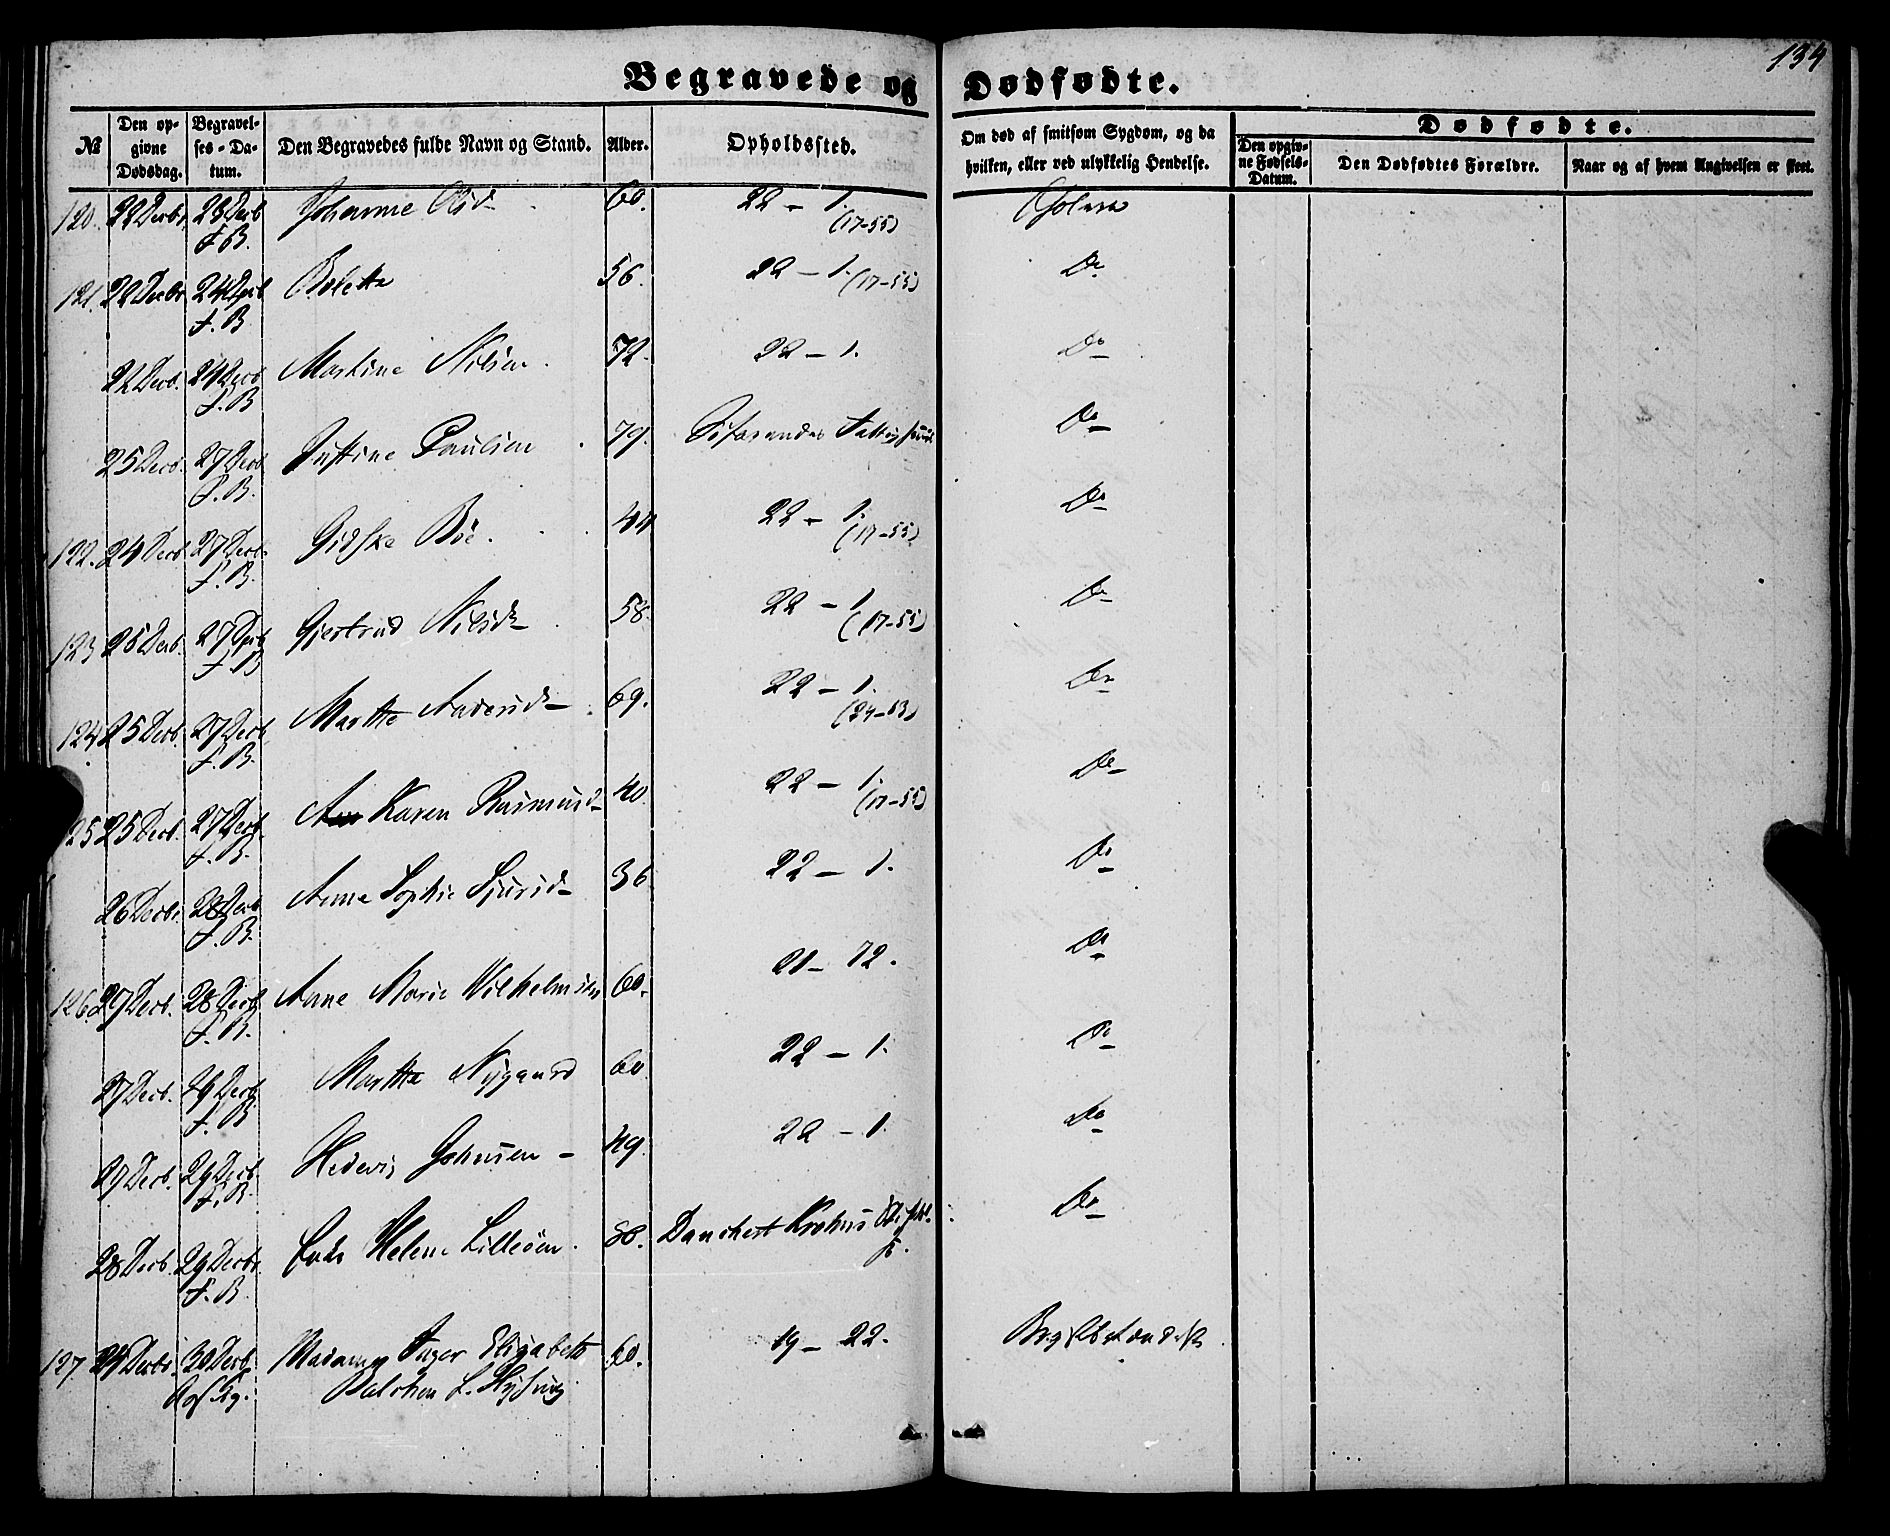 134
Begravede og Dødfødte.
№
Den op-
givne
Dødsdag.
Begravel-
ses-Da-
tum.
Den Begravedes fulde Navn og Stand.
Alder.
Opholdssted.
Om død af smitsom Sygdom, og da
hvilken, eller ved ulykkelig Hendelse.
Dødfødte.
Den opgiv-
ne Fødsels-
Datum.
Den Dødfødtes Forældre.
Naar og af hvem Angivelsen er skeet.
120. 22 Decbr. 23 Decb Johanne Olsd 60. 22 – 1. Cholera
F.B. (17–55)
121. 22 Decbr 24 Decb Bolette 56. 22 – 1. (17–55) Do
F.B
22 Decb. 24 Decb Martine Nilsen. 72. 22 – 1. Do
F.B
25 Decb. 27 Decb Justine Paulsen 79. Do
F.B.
122. 24 Decb. 27 Decb. Gidske Böe. 44 22 – 1. Do
F.B. (17–55)
123 25 Decb. 27 Decb Gjertrud Nilsd 58. 22 – 1. Do
F.B (17–55)
124 25 Decb. 27 Decb Marthe Andersd 69. 22 – 1. Do
F.B. (24–13)
125 25 Decb. 27 Decb. Karen Rasmusd 40. 22 – 1. Do
F.B. (17–55)
26 Decbr. 28 Decb Anne Sophie Sjursd 36 22 – 1. Do
F.B.
126. 27 Decb. 28 Decb Anne Marie Wilhelmsen 60. 21 – 72. Do
F.B.
27 Decb. 29 Decb. Marthe Nygaard 60. 22 – 1. Do
F.B.
27 Decb. 29 Decb Hedevig Johnsen 49. 22 – 1. Do
F.B.
28 Decb. 29 Decbr. Helene Lilleøen. 80. Danckert Krohns Do
F.B.
127. 24 Decbr. 30 Decb. Madame Inger Elisabeth 60. 19 – 22.
Balchen f. Hysing